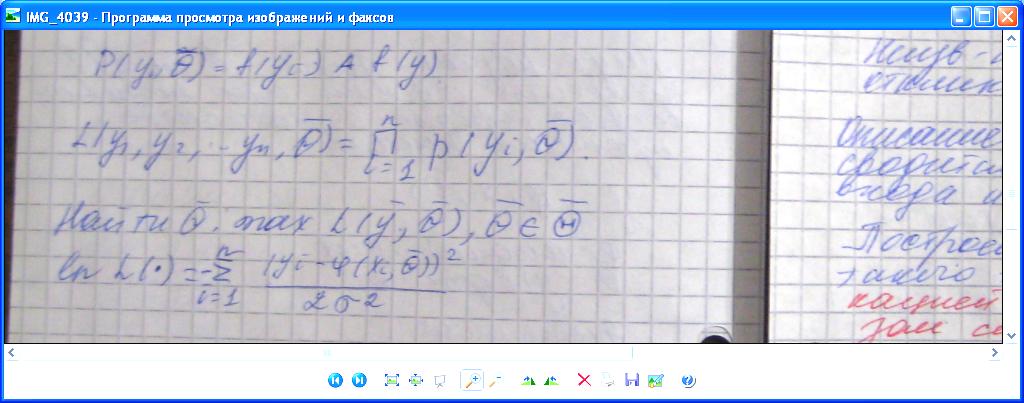 IMG_4039 - Программа просмотра изображений и факсов
P(y, θ̄) = f(yi) A f(y)
L(y₁, y₂, ... yn, θ̄) = ∏ᵢ₌₁ⁿ p(yi, θ̄).
Найти θ̄. max L(ȳ, θ̄), θ̄ ∈ Θ̄
ln L(•) = -∑ᵢ₌₁ⁿ (yi - φ(xi, θ̄))² / 2σ²
Описание
сводится
входа и
Построе
такого
кацией
зом